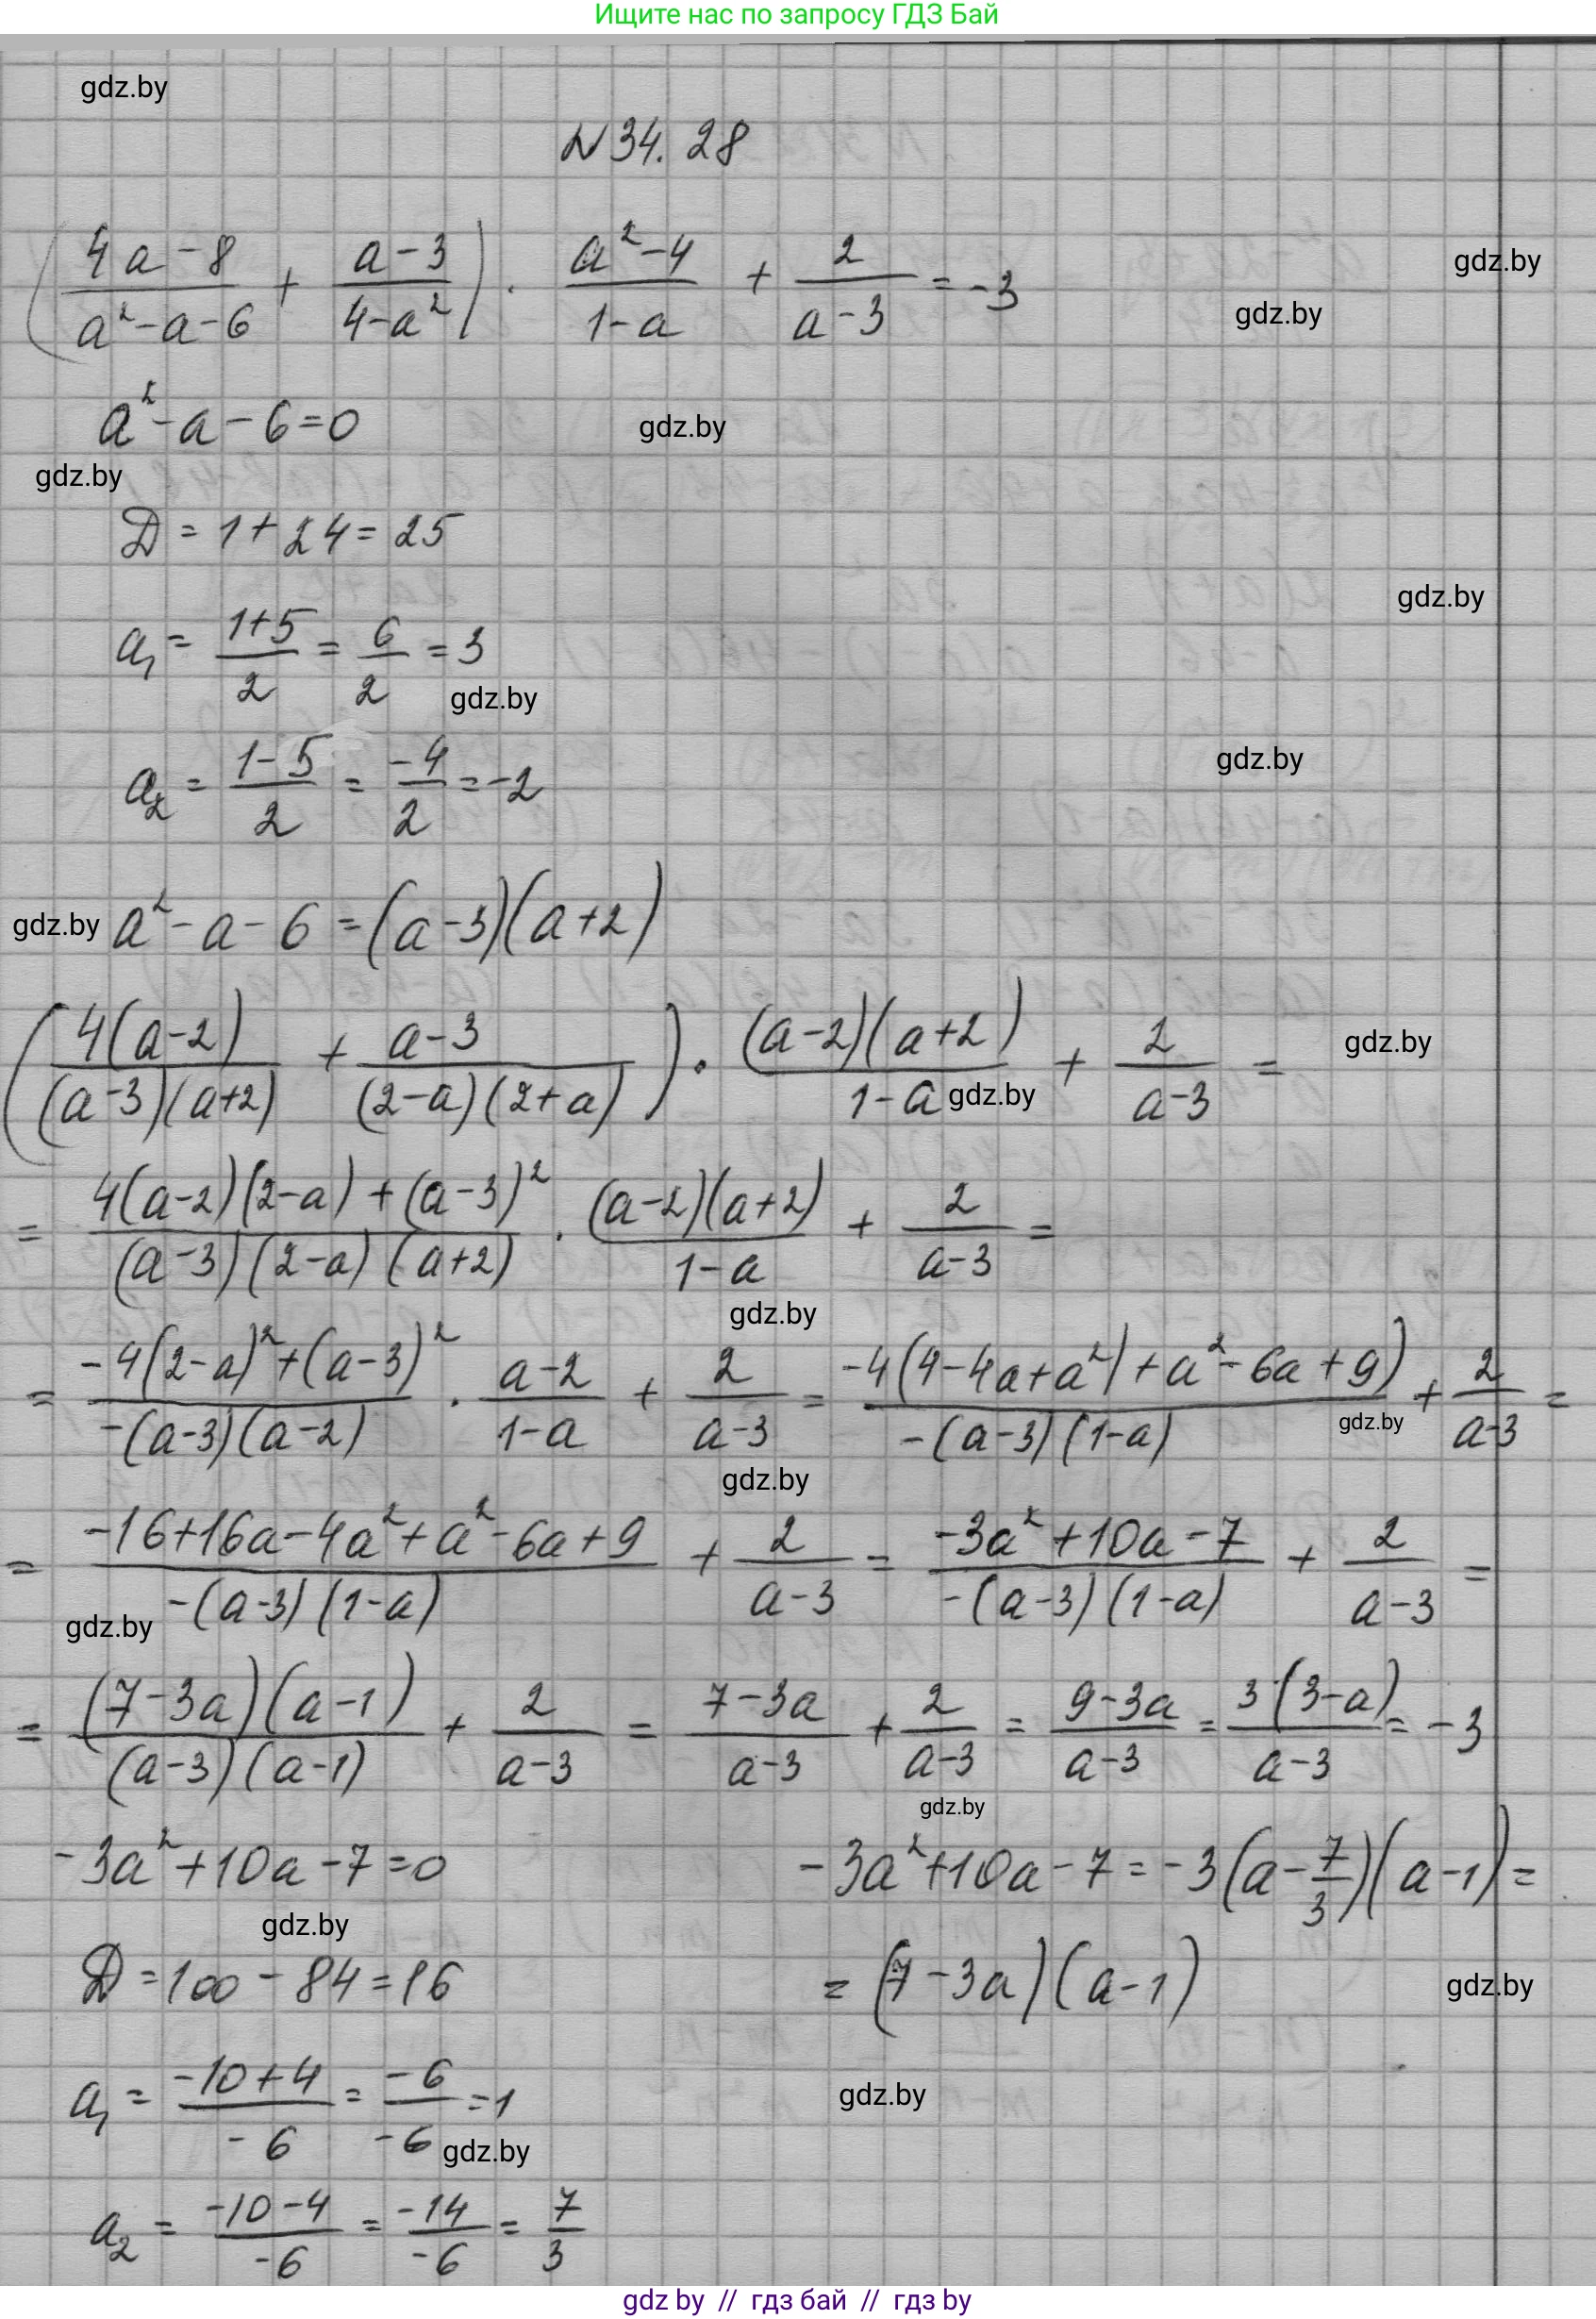 Ищите нас по запросу ГДЗ Бай
gdz.by
N34.28
(4a-8/a²-a-6 + a-3/4-a²) · a²-4/1-a + 2/a-3 = -3
gdz.by
gdz.by
a²-a-6=0
gdz.by
gdz.by
D=1+24=25
gdz.by
a₁ = 1+5/2 = 6/2 = 3
gdz.by
gdz.by
a₂ = 1-5/2 = -4/2 = -2
gdz.by
a²-a-6=(a-3)(a+2)
(4(a-2)/(a-3)(a+2) + a-3/(2-a)(2+a)) · (a-2)(a+2)/1-a + 2/a-3 =
gdz.by
gdz.by
= 4(a-2)(2-a)+(a-3)²/(a-3)(2-a)(a+2) · (a-2)(a+2)/1-a + 2/a-3 =
gdz.by
= -4(2-a)²+(a-3)²/-(a-3)(a-2) · a-2/1-a + 2/a-3 = -4(4-4a+a²)+a²-6a+9)/-(a-3)(1-a) + 2/a-3 =
gdz.by
gdz.by
= -16+16a-4a²+a²-6a+9/-(a-3)(1-a) + 2/a-3 = -3a²+10a-7/-(a-3)(1-a) + 2/a-3 =
gdz.by
= (7-3a)(a-1)/(a-3)(a-1) + 2/a-3 = 7-3a/a-3 + 2/a-3 = 9-3a/a-3 = 3(3-a)/a-3 = -3
gdz.by
-3a²+10a-7=0
-3a²+10a-7=-3(a-7/3)(a-1)=
gdz.by
D=100-84=16
=(7-3a)(a-1)
gdz.by
a₁ = -10+4/-6 = -6/-6 = 1
gdz.by
gdz.by
a₂ = -10-4/-6 = -14/-6 = 7/3
gdz by // гдз бай // гдз by